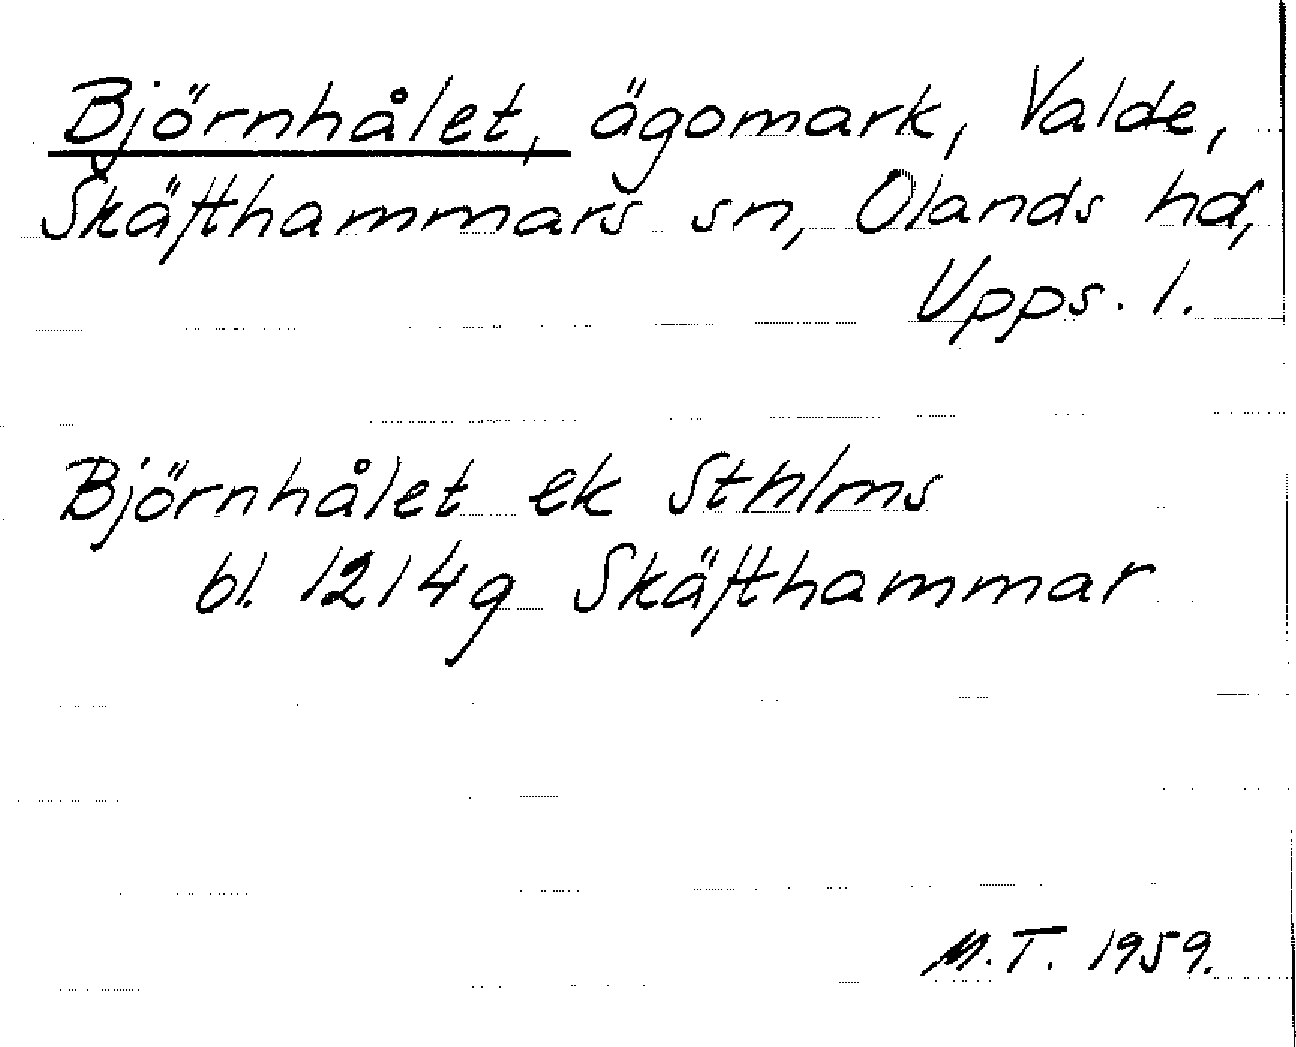 Björnhålet, ägomark, Valde,
Skäfthammars sn, Olands hd,
Upps. l.
Björnhålet ek Sthlms
bl. 1214g Skäfthammar
M.T. 1959.